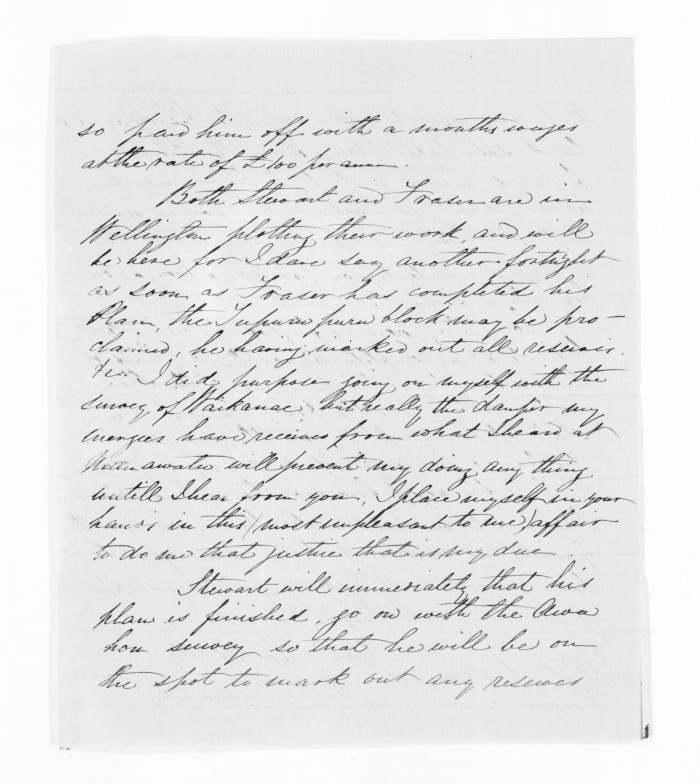 so paid him off with a months wages
at the rate of £100 per annm.
Both Stewart and Fraser are in
Wellington plotting their work, and will
be here for I dare say another fortnight
as soon as Fraser has completed his
Plan, the Tupurupuru block may be pro-
claimed, he having marked out all reserves.
&c. I did purpose going on myself with the
survey of Waikanae but really the damper my
energies have received from what I heard at
Manawatu will prevent my doing any thing
untill I hear from you, I place myself in your
hands in this (most unpleasant to me) affair
to do me that justice that is my due.
Stewart will immediately that his
plan is finished, go on with the Awa
hou survey so that he will be on
the spot to mark out any reserves